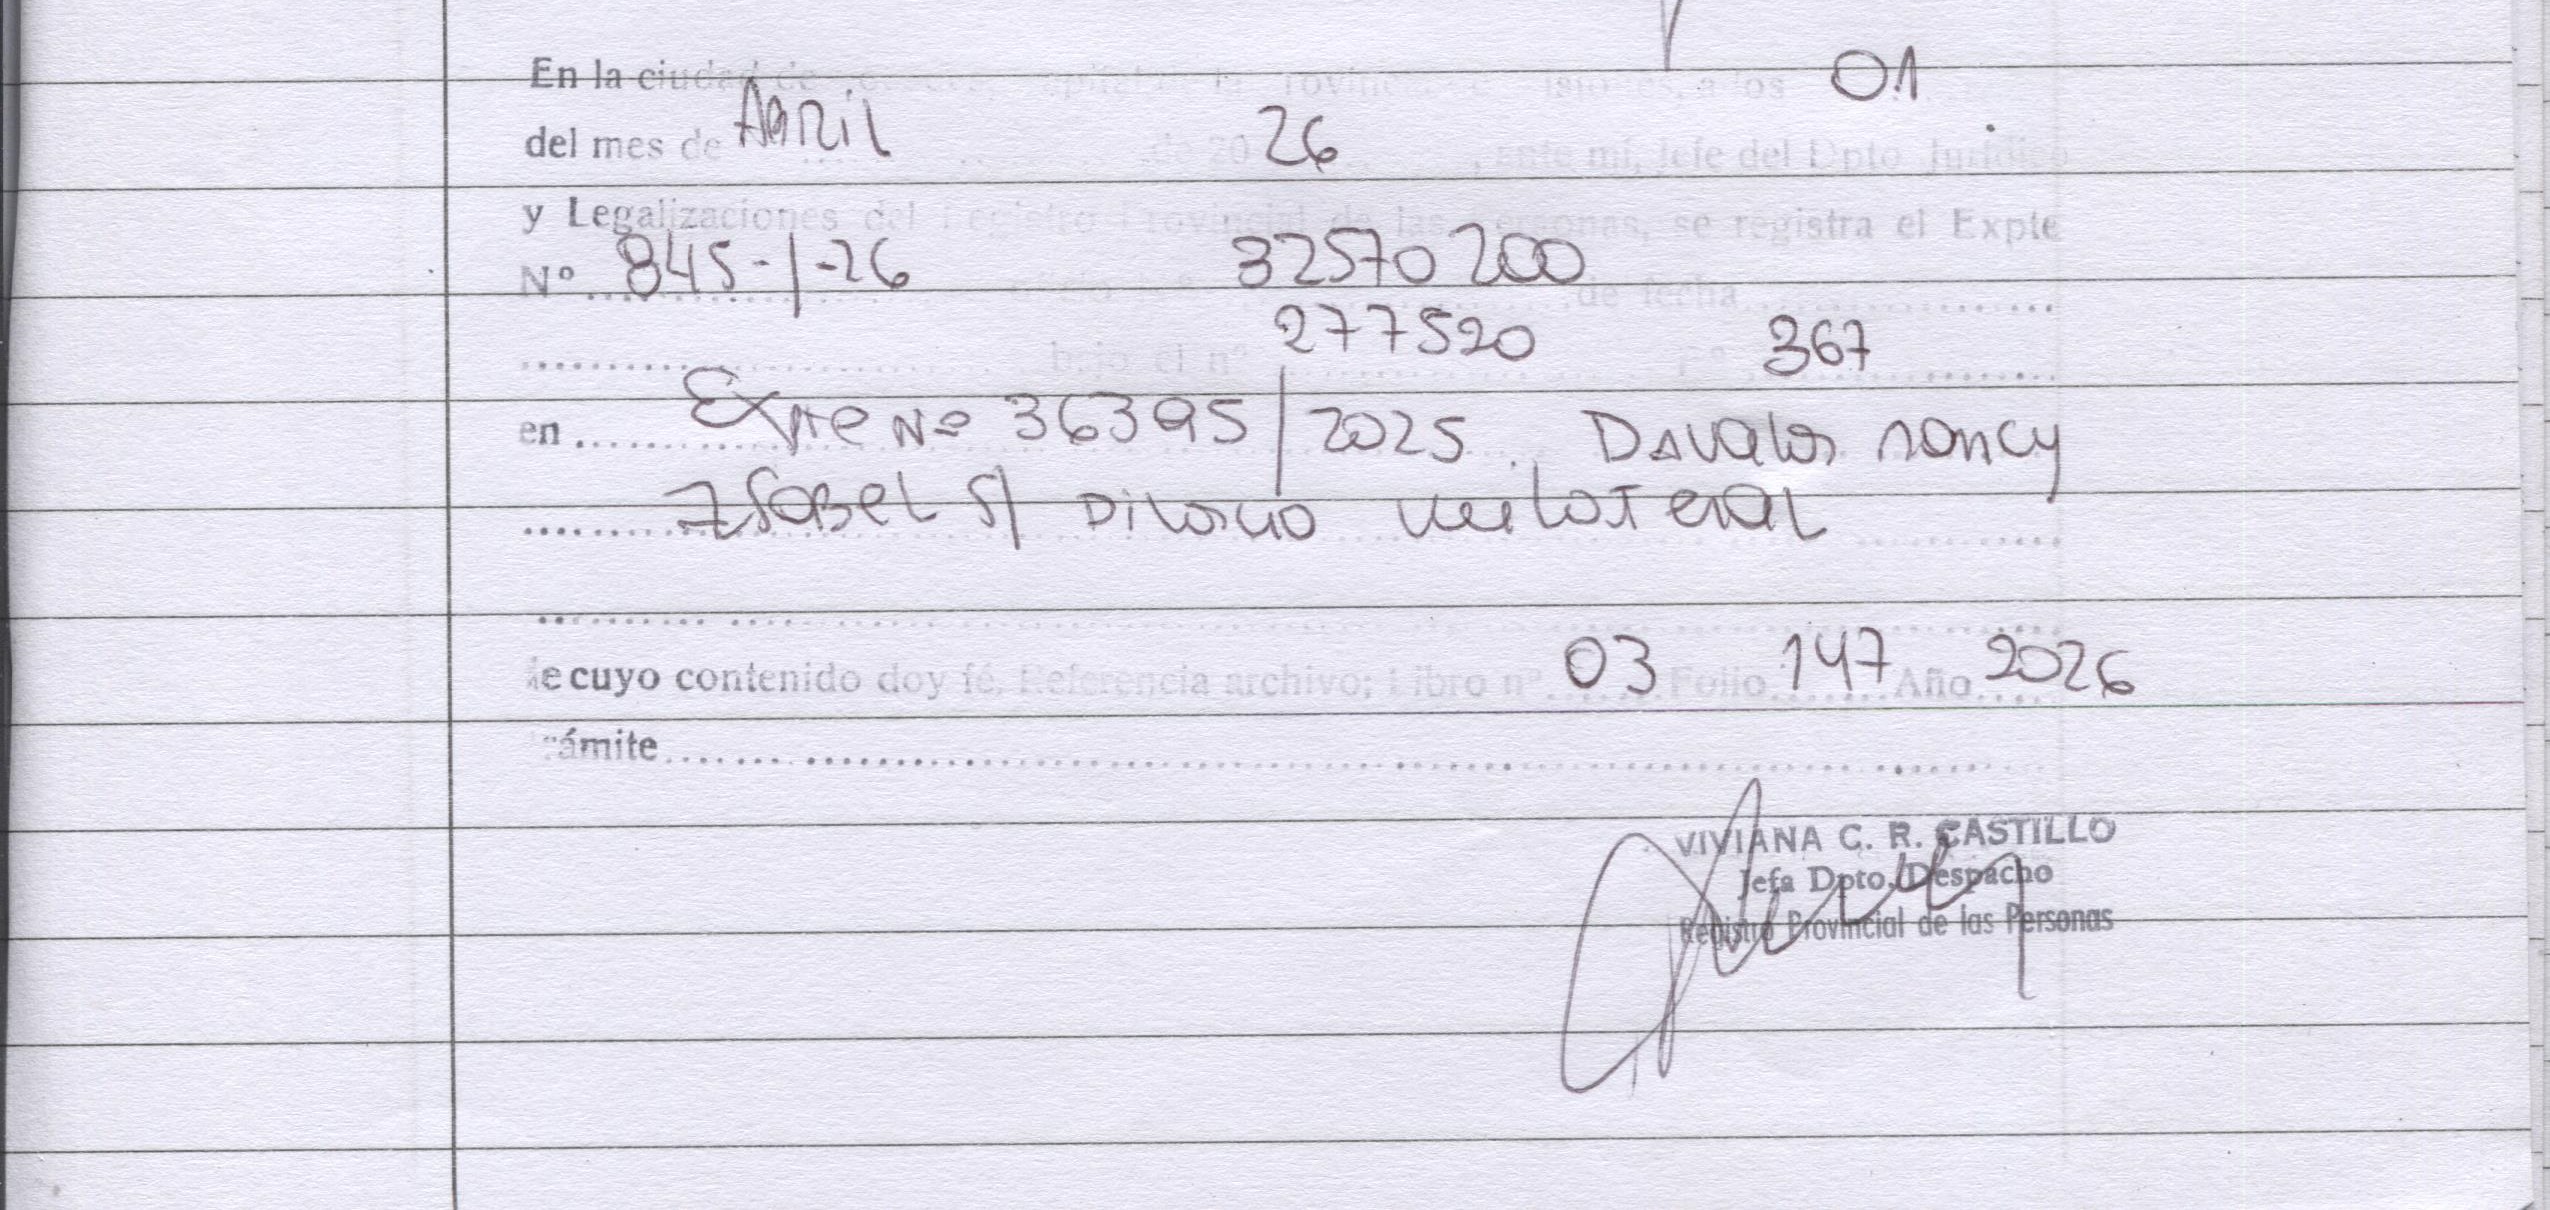 En la ciudad de la Provincia a los 01
del mes de Abril de 20 26, ante mí, Jefe del Dpto. Jurídico
y Legalizaciones del Registro Provincial de las Personas, se registra el Expte
Nº 845-/-26 32570200 de fecha
bajo el nº 277520 Fº 367
en Expte Nº 36395/2025 Davalos Nancy
Isabel s/ Divorcio Unilateral
de cuyo contenido doy fé. Referencia archivo; Libro nº 03 Folio 147 Año 2026
trámite
VIVIANA C. R. CASTILLO
Jefa Dpto. Despacho
Registro Provincial de las Personas